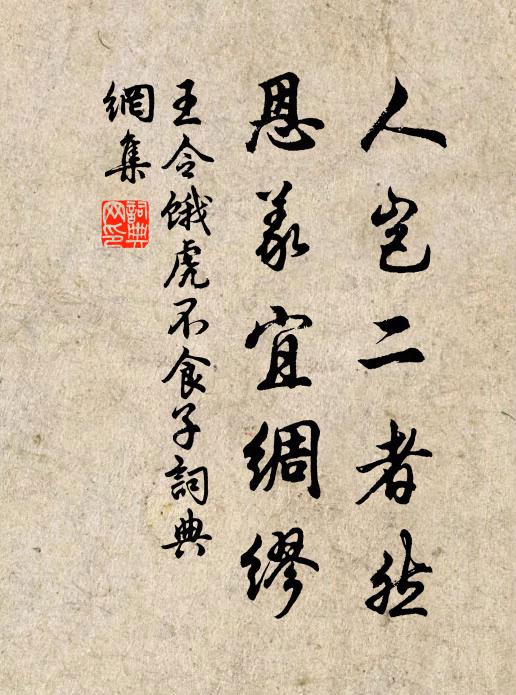 人岂二者然
恩义宜绸缪
王令餓虎不食子詞典
網集
詞典
网印